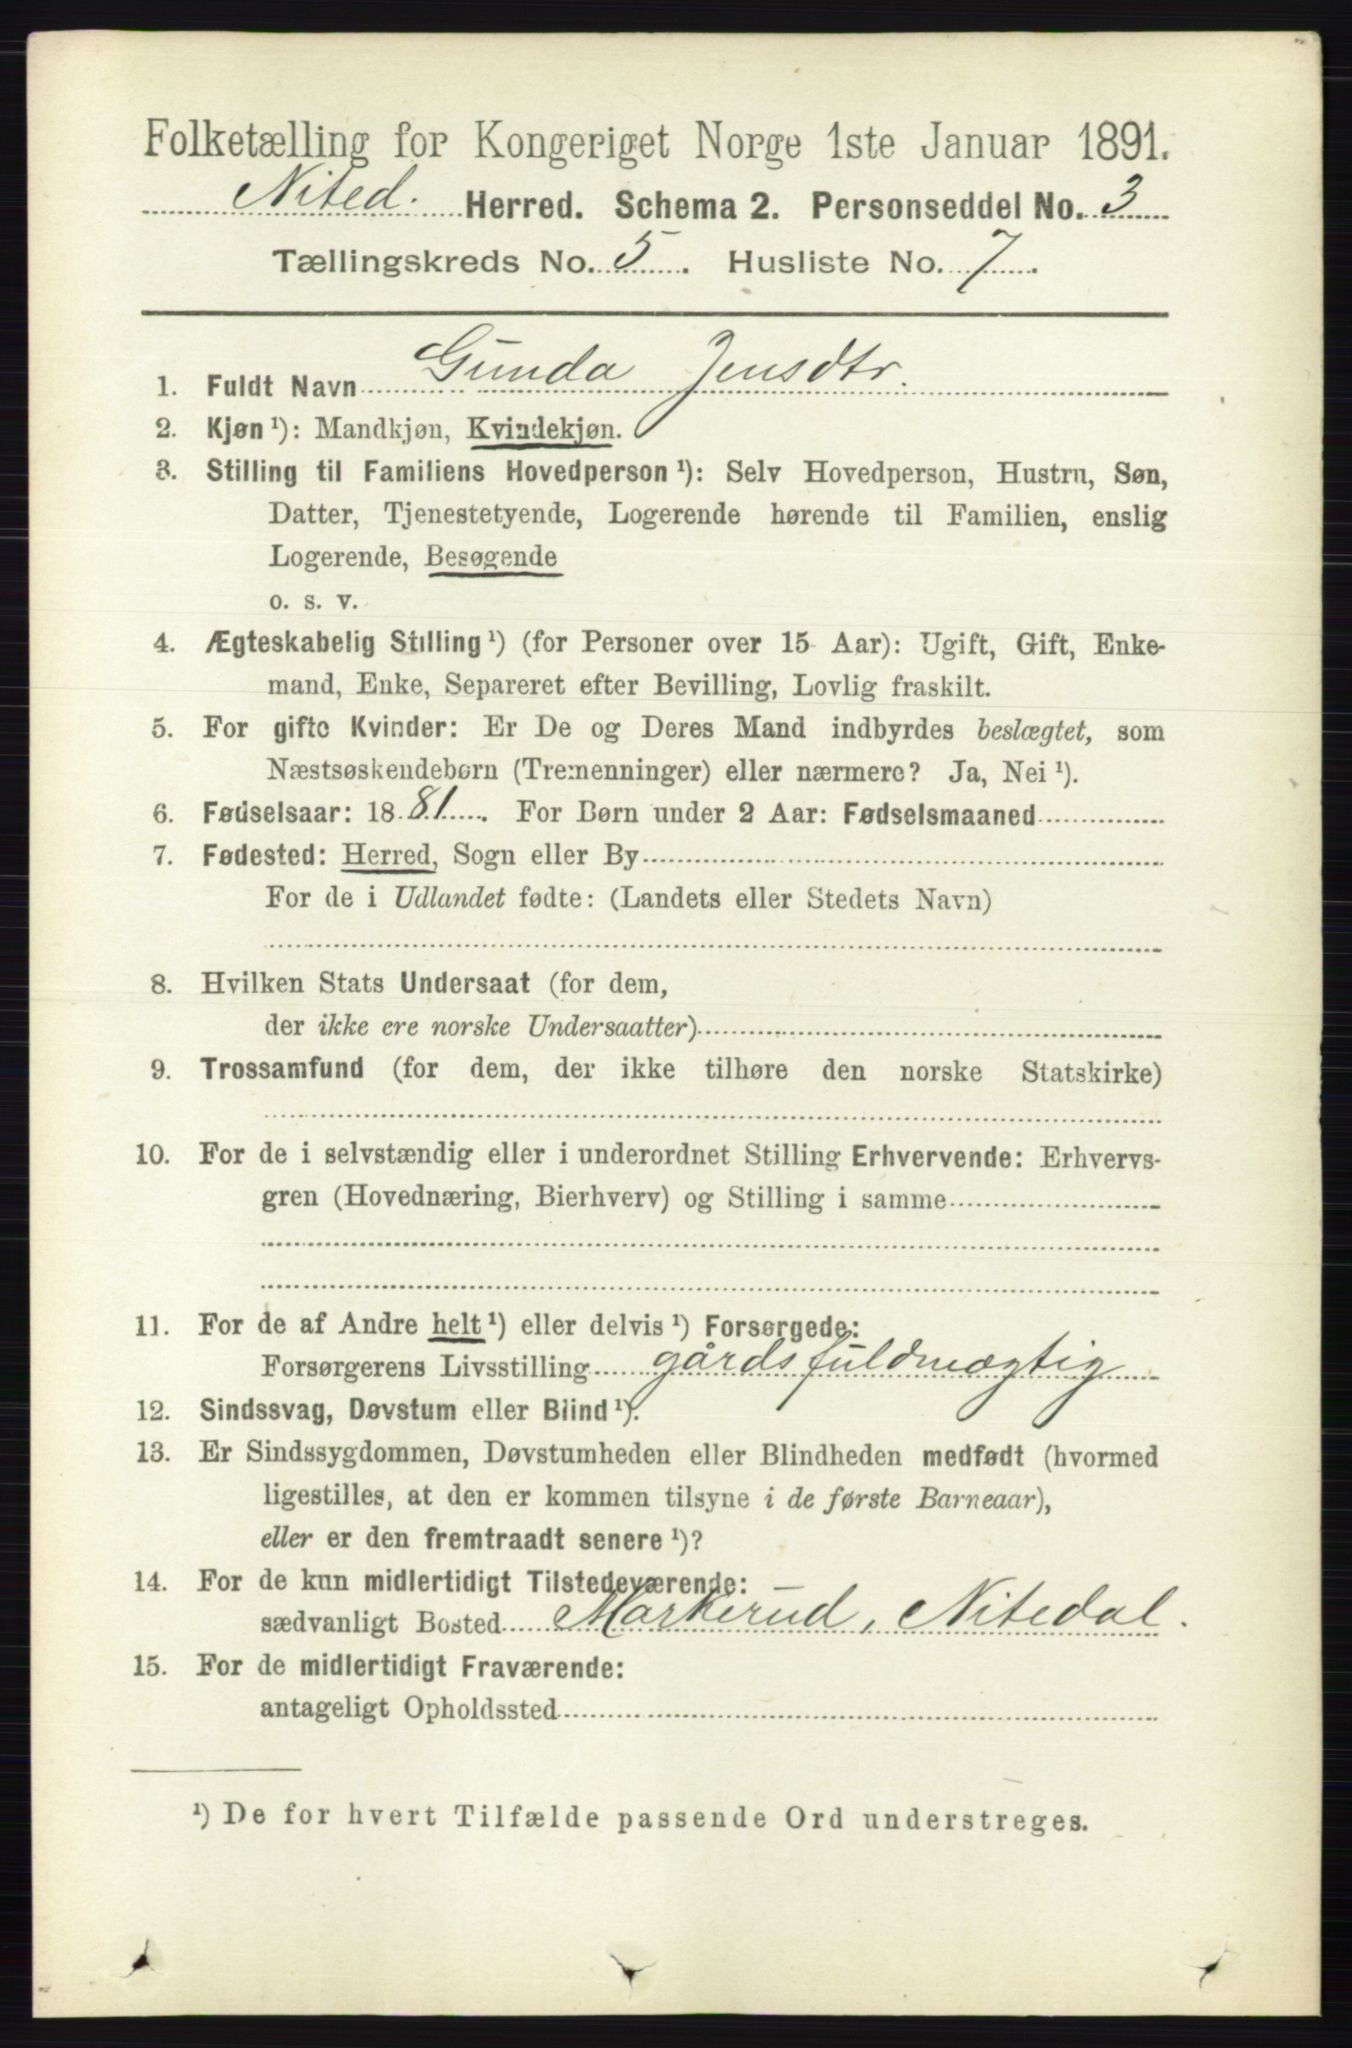 Folketælling for Kongeriget Norge 1ste Januar 1891.
Nited. Herred. Schema 2. Personseddel No. 3
Tællingskreds No. 5. Husliste No. 7.
1. Fuldt Navn Gunda Jensdtr.
2. Kjøn ¹): Mandkjøn, Kvindekjøn.
3. Stilling til Familiens Hovedperson ¹): Selv Hovedperson, Hustru, Søn,
Datter, Tjenestetyende, Logerende hørende til Familien, enslig
Logerende, Besøgende
o. s. v.
4. Ægteskabelig Stilling ¹) (for Personer over 15 Aar): Ugift, Gift, Enke-
mand, Enke, Separeret efter Bevilling, Lovlig fraskilt.
5. For gifte Kvinder: Er De og Deres Mand indbyrdes beslægtet, som
Næstsøskendebørn (Tremenninger) eller nærmere? Ja, Nei ¹).
6. Fødselsaar: 1881. For Børn under 2 Aar: Fødselsmaaned
7. Fødested: Herred, Sogn eller By
For de i Udlandet fødte: (Landets eller Stedets Navn)
8. Hvilken Stats Undersaat (for dem,
der ikke ere norske Undersaatter)
9. Trossamfund (for dem, der ikke tilhøre den norske Statskirke)
10. For de i selvstændig eller i underordnet Stilling Erhvervende: Erhvervs-
gren (Hovednæring, Bierhverv) og Stilling i samme
11. For de af Andre helt ¹) eller delvis ¹) Forsørgede:
Forsørgerens Livsstilling gårdsfuldmægtig
12. Sindssvag, Døvstum eller Blind ¹).
13. Er Sindssygdommen, Døvstumheden eller Blindheden medfødt (hvormed
ligestilles, at den er kommen tilsyne i de første Barneaar),
eller er den fremtraadt senere ¹)?
14. For de kun midlertidigt Tilstedeværende:
sædvanligt Bosted Markerud, Nitedal.
15. For de midlertidigt Fraværende:
antageligt Opholdssted
¹) De for hvert Tilfælde passende Ord understreges.